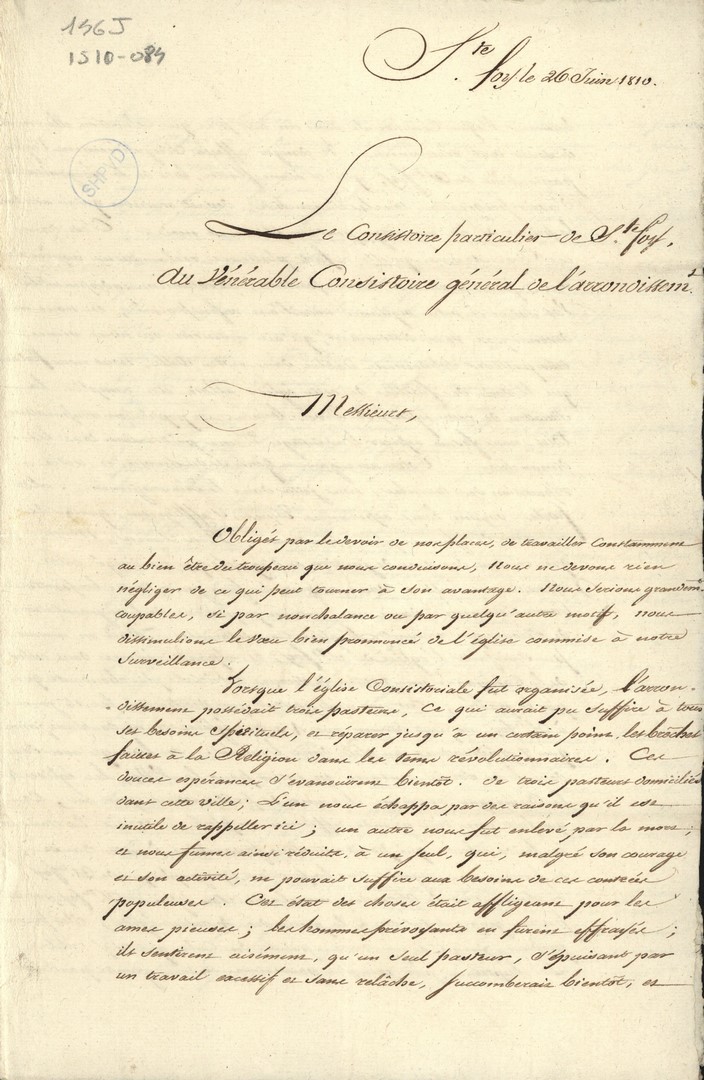 146J
1S10-084
SHPVD
S.te foy le 26 Juin 1810.
Le Consistoire particulier de S.te foy,
au Vénérable Consistoire général de l'arrondissem.t
Messieurs,
Obligés par le devoir de nos places, de travailler Constamment
au bien être du troupeau que nous conduisons, Nous ne devons rien
négliger de ce qui peut tourner à son avantage. Nous serions grandem.t
coupables, si par nonchalance ou par quelqu'autre motif, nous
dissimulions le vœu bien prononcé de l'église commise à notre
surveillance.
Lorsque l'église Consistoriale fut organisée, l'arron-
dissement possédait trois pasteurs, Ce qui aurait pu suffire à tous
ses besoins spirituels, et réparer jusqu'à un certain point, les brèches
faites à la Religion dans les tems révolutionnaires. Ces
douces espérances s'évanouirent bientôt. de trois pasteurs domiciliés
dans cette ville; L'un nous échappa par des raisons qu'il est
inutile de rappeller ici; un autre nous fut enlevé par la mort;
et nous fumes ainsi réduits, à un seul, qui, malgré son courage
et son activité, ne pouvait suffire aux besoins de ces contrées
populeuses. Cet état des choses était affligeant pour les
ames pieuses; les hommes prévoyants en furent effrayés;
ils sentirent aisément, qu'un seul pasteur, s'épuisant par
un travail excessif et sans relâche, succomberait bientôt, et